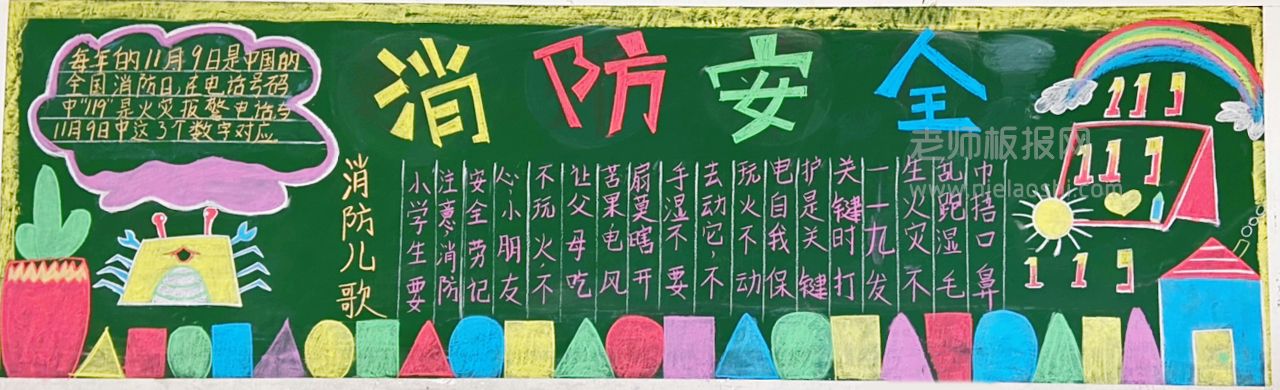 每年的11月9日是中国的
全国消防日,在电话号码
中"119"是火灾报警电话与
11月9日中这3个数字对应
消防安全
消防儿歌
小学生要
注意消防
安全劳记
心小朋友
不玩火,不
让父母吃
苦果电风
扇莫瞎开
手湿不要
去动它,不
玩火不动
电自我保
护是关键
关键时打
一一九发
生火灾不
乱跑湿毛
巾捂口鼻
119
119
119
老师板报网